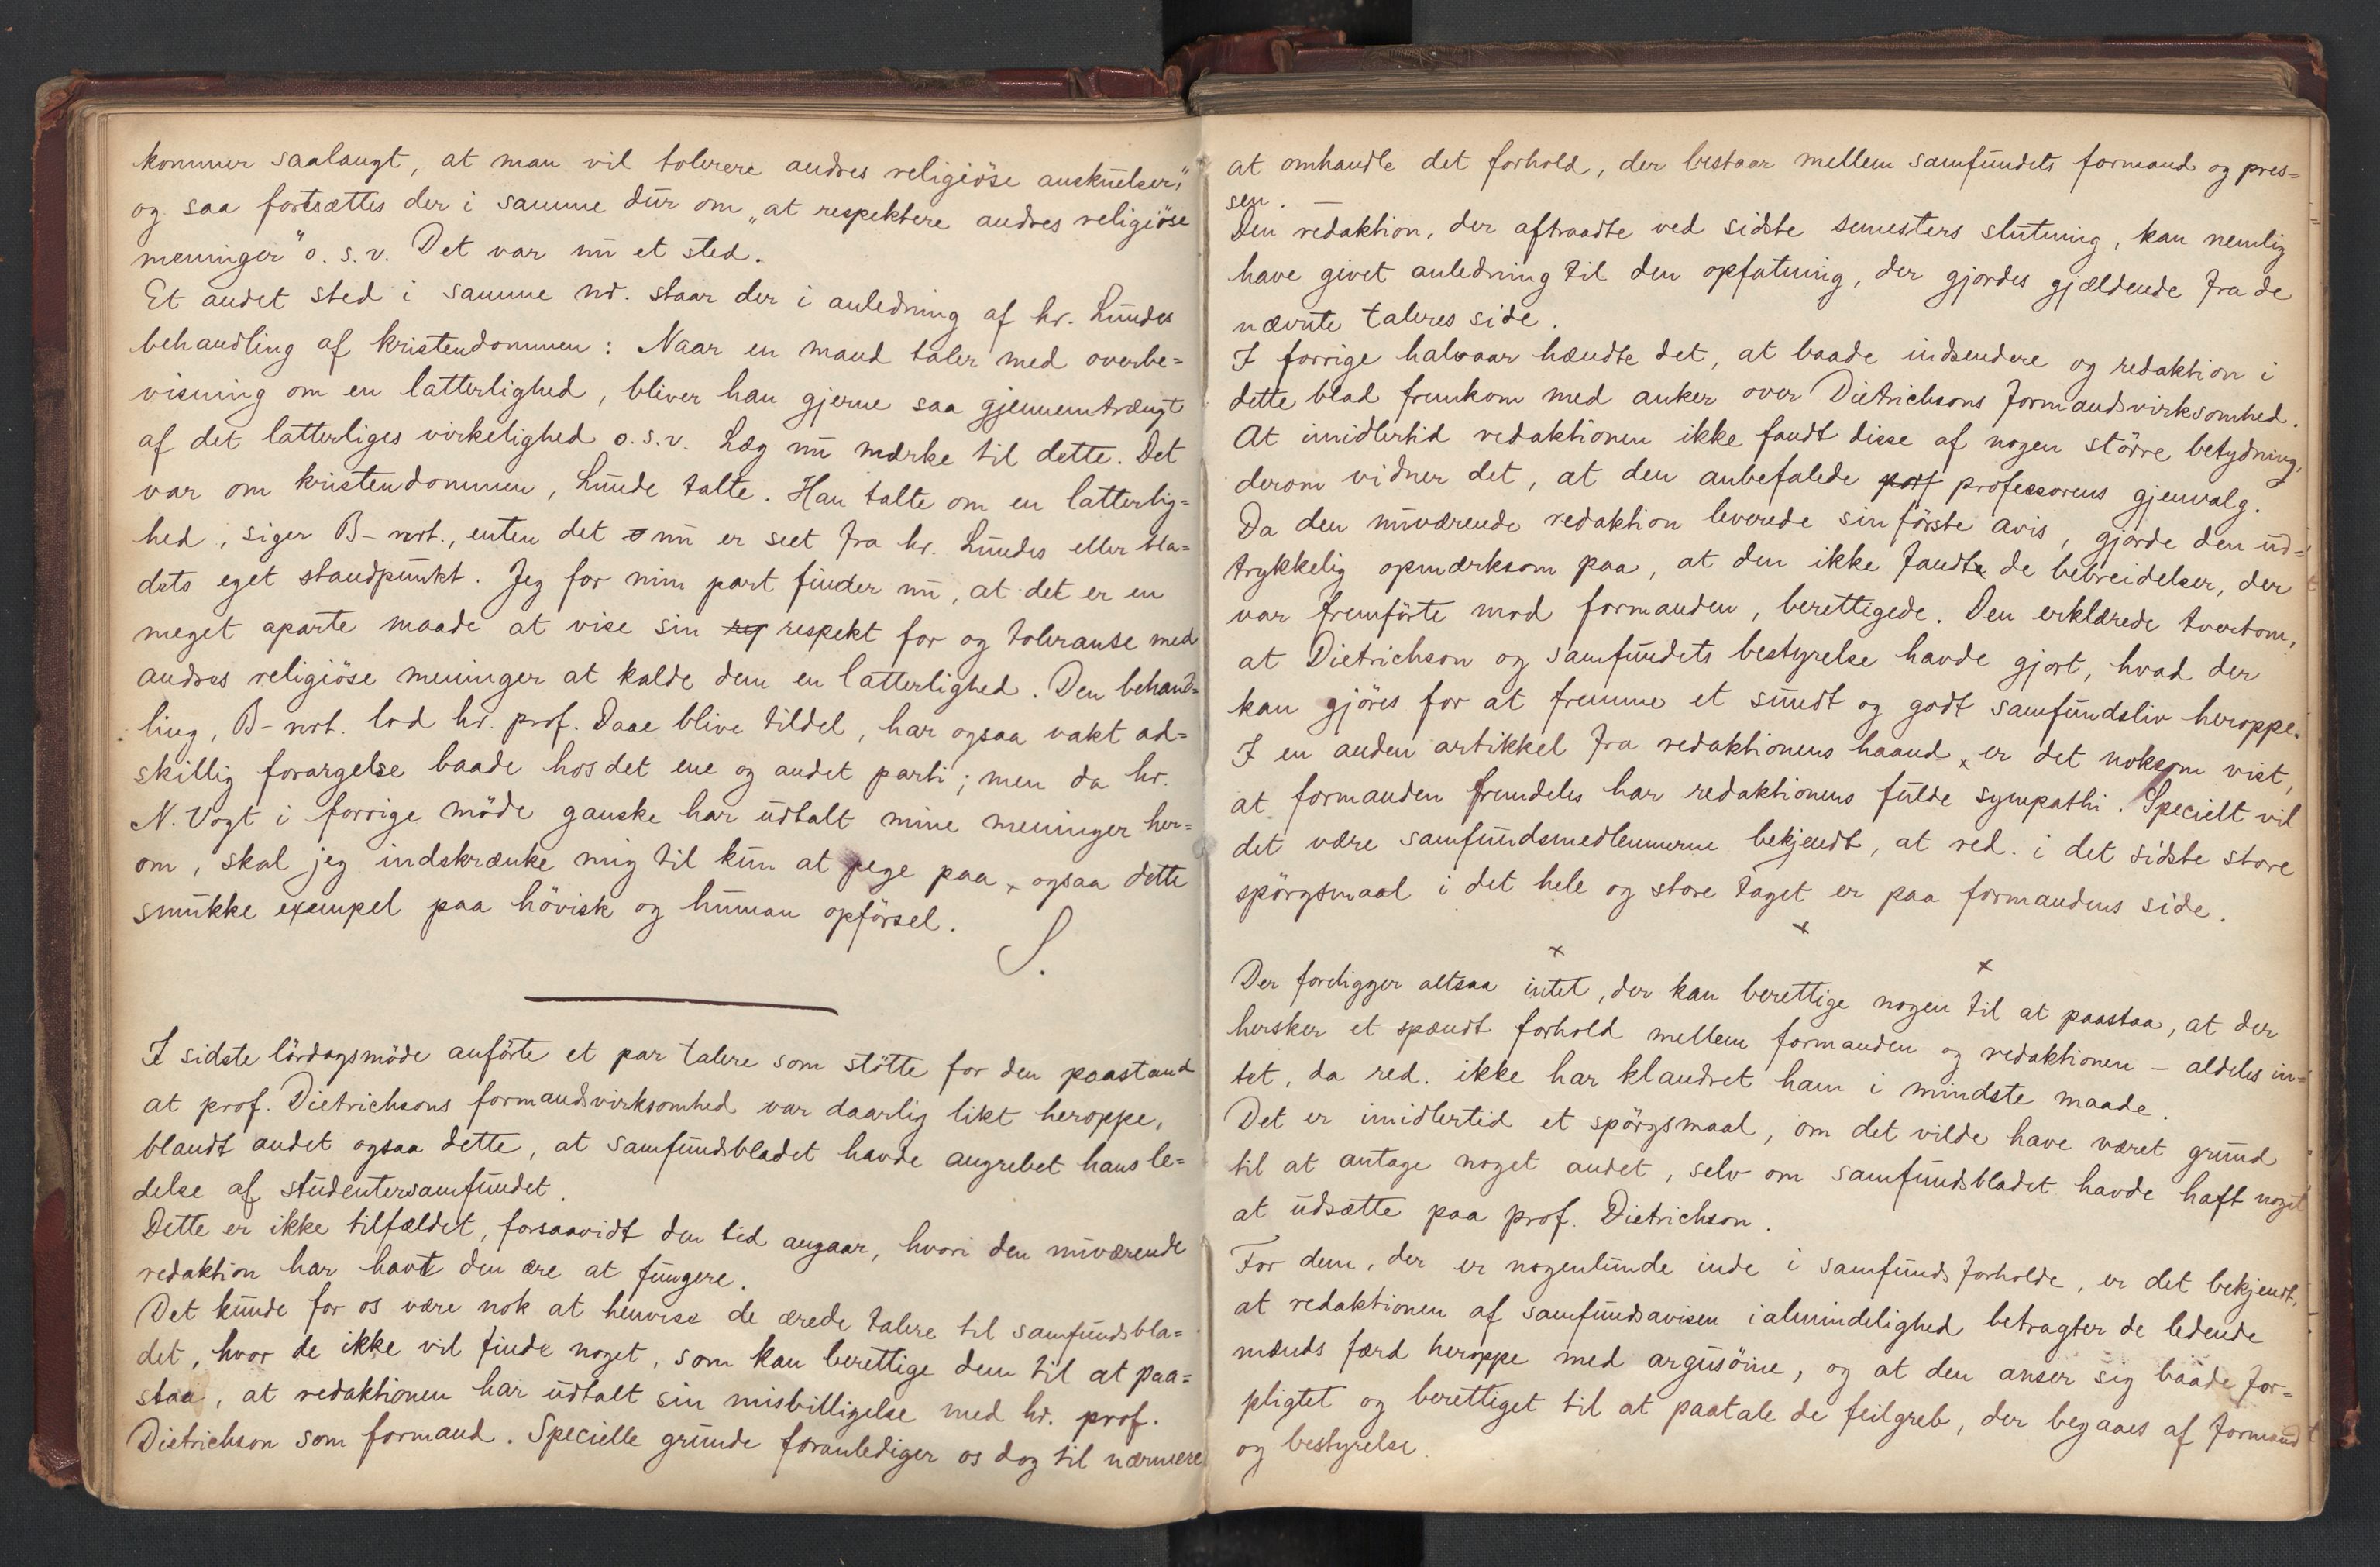 kommer saalangt, at man vil tolerere andres religiöse anskuelser,"
og saa fortsættes der i samme dur om „at respektere andres religiöse
meninger" o. s. v. Det var nu et sted.
Et andet sted i samme nr. staar der i anledning af hr. Lundes
behandling af kristendommen: Naar en mand taler med overbe=
visning om en latterlighed, bliver han gjerne saa gjennemtrængt
af det latterliges virkelighed o. s. v. Læg nu mærke til dette. Det
var om kristendommen, Lunde talte. Han talte om en latterlig=
hed, siger B-nrt., enten det nu er seet fra hr. Lundes eller bla=
dets eget standpunkt. Jeg for min part finder nu, at det er en
meget aparte maade at vise sin respekt for og toleranse med
andres religiöse meninger at kalde dem en latterlighed. Den behand=
ling, B-nrt. lod hr. prof. Daae blive tildel, har ogsaa vakt ad=
skillig forargelse baade hos det ene og andet parti; men da hr.
N. Vogt i forrige möde ganske har udtalt mine meninger her=
om, skal jeg indskrænke mig til kun at pege paa ogsaa dette
smukke exempel paa hövisk og human opförsel.
S.
I sidste lördagsmöde anförte et par talere som stötte for den paastand
at prof. Dietrichsons formandsvirksomhed var daarlig likt heroppe,
blandt andet ogsaa dette, at samfundsbladet havde angrebet hans le=
delse af studentersamfundet.
Dette er ikke tilfældet, forsaavidt den tid angaar, hvori den nuværende
redaktion har havt den ære at fungere.
Det kunde for os være nok at henvise de ærede talere til samfundsbla=
det, hvor de ikke vil finde noget, som kan berettige dem til at paa=
staa, at redaktionen har udtalt sin misbilligelse med hr. prof.
Dietrichson som formand. Specielle grunde foranlediger os dog til nærmere
at omhandle det forhold, der bestaar mellem samfundets formand og pres=
sen.
Den redaktion, der aftraadte ved sidste semesters slutning, kan nemlig
have givet anledning til den opfatning, der gjordes gjældende fra de
nævnte taleres side.
I forrige halvaar hændte det, at baade indsendere og redaktion i
dette blad fremkom med anker over Dietrichsons formandsvirksomhed.
At imidlertid redaktionen ikke fandt disse af nogen större betydning,
derom vidner det, at den anbefalede professorens gjenvalg.
Da den nuværende redaktion leverede sin förste avis, gjorde den ud=
trykkelig opmærksom paa, at den ikke fandt de bebreidelser, der
var fremförte mod formanden, berettigede. Den erklærede tvertom,
at Dietrichson og samfundets bestyrelse havde gjort, hvad der
kan gjöres for at fremme et sundt og godt samfundsliv heroppe.
I en anden artikkel fra redaktionens haand er det noksom vist,
at formanden fremdeles har redaktionens fulde sympathi. Specielt vil
det være samfundsmedlemmerne bekjendt, at red. i det sidste store
spörgsmaal i det hele og store taget er paa formandens side.
x x x
Der foreligger altsaa intet, der kan berettige nogen til at paastaa, at der
hersker et spændt forhold mellem formanden og redaktionen – aldeles in=
tet, da red. ikke har klandret ham i mindste maade.
Det er imidlertid et spörgsmaal, om det vilde have været grund
til at antage noget andet, selv om samfundsbladet havde haft noget
at udsætte paa prof. Dietrichson.
For dem, der er nogenlunde inde i samfundsforholde, er det bekjendt,
at redaktionen af samfundsavisen i almindelighed betragter de ledende
mænds færd heroppe med argusöine, og at den anser sig baade for=
pligtet og berettiget til at paatale de feilgreb, der begaaes af formand
og bestyrelse.